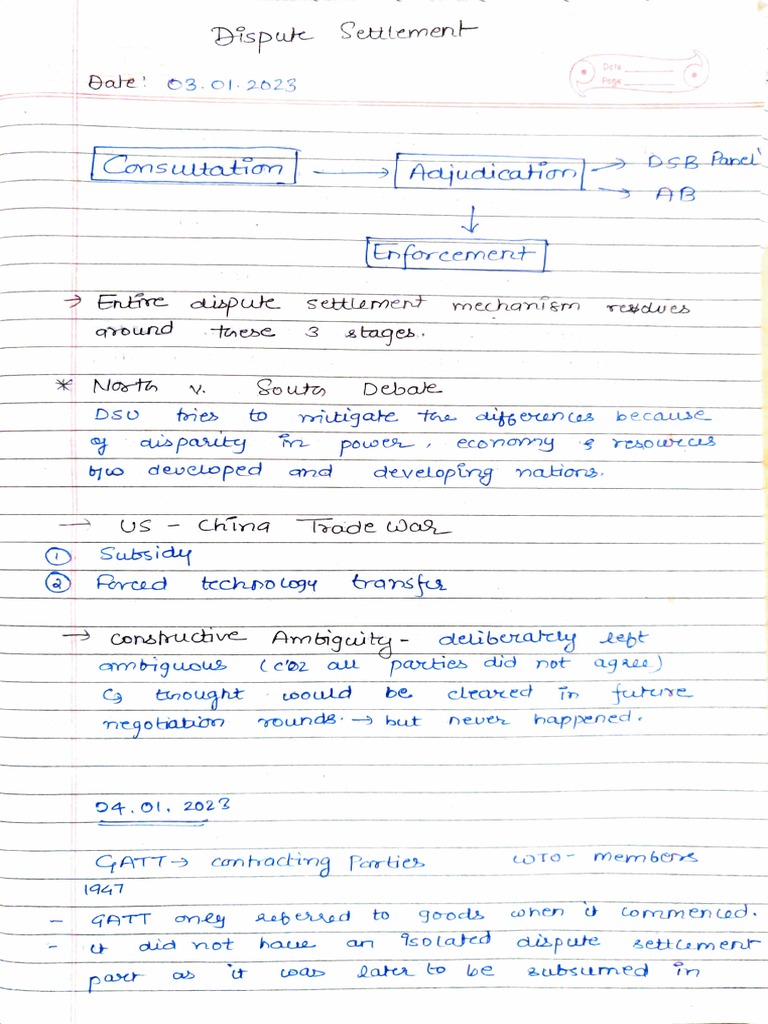 Dispute Settlement
Date: 03.01.2023
Date
Page
Consultation → Adjudication → DSB Panel
→ AB
↓
Enforcement
→ Entire dispute settlement mechanism revolves
around these 3 stages.
* North v. South Debate
DSU tries to mitigate the differences because
of disparity in power, economy & resources
b/w developed and developing nations.
→ US - China Trade War
① Subsidy
② Forced technology transfer
→ Constructive Ambiguity - deliberately left
ambiguous (c'oz all parties did not agree)
↳ thought would be cleared in future
negotiation rounds. → but never happened.
04.01.2023
GATT → contracting Parties WTO - members
1947
- GATT only referred to goods when it commenced.
- it did not have an isolated dispute settlement
part as it was later to be subsumed in